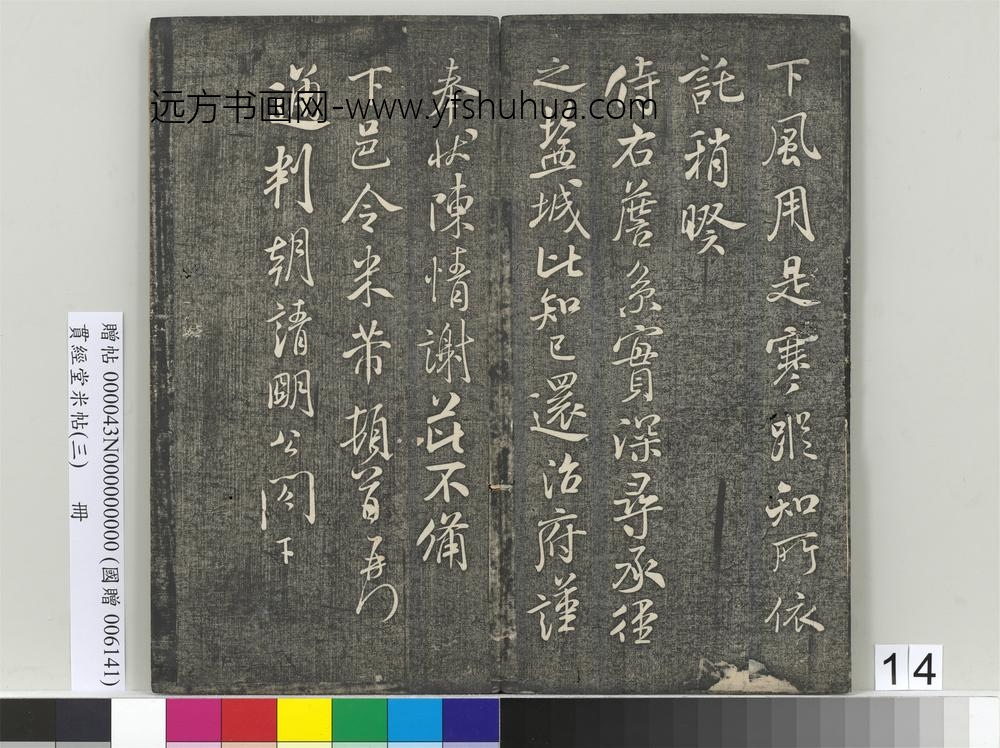 下風用是寒蹤知所依
託稍暌
侍右詹系實深尋承徑
之盐城比知已還治府謹
奉状陳情謝茲不備
下邑令米芾頓首再拜
通判朝請明公閤下
远方书画网-www.yfshuhua.com
贈帖 000043N000000000 (國贈 006141)
貫經堂米帖(三) 冊
14